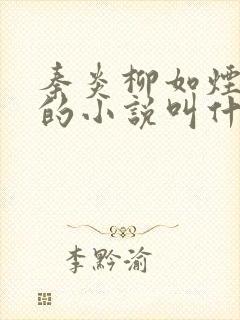 秦炎柳如煙
的小說叫什
李黔渝